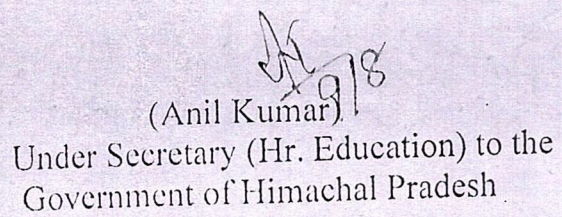 9/8
(Anil Kumar)
Under Secretary (Hr. Education) to the
Government of Himachal Pradesh